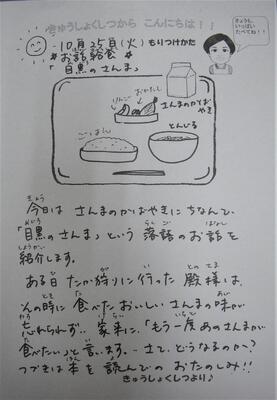 きゅうしょくしつから こんにちは!!
きょうも、
いっぱい
たべてね!!
10月25日(火)もりつけかた
お話給食
「目黒のさんま」
りんご
おかたし
さんまのかばやき
ごはん
とんじる
きょう
今日は さんまのかばやきにちなんで、
めぐろ らくご はなし
「目黒のさんま」という落語のお話を
しょうかい
紹介します。
ひ が い とのさま
ある日 たか狩りに行った 殿様は、
とき た あじ
その時に食べたおいしいさんまの味が
わす けらい いちど
忘れられず…家来に、「もう一度あのさんまが
た い
食べたい」と言います。…さて、どうなるのか?
ほん よ
つづきは本を読んでのおたのしみ!!
きゅうしょくしつより♪